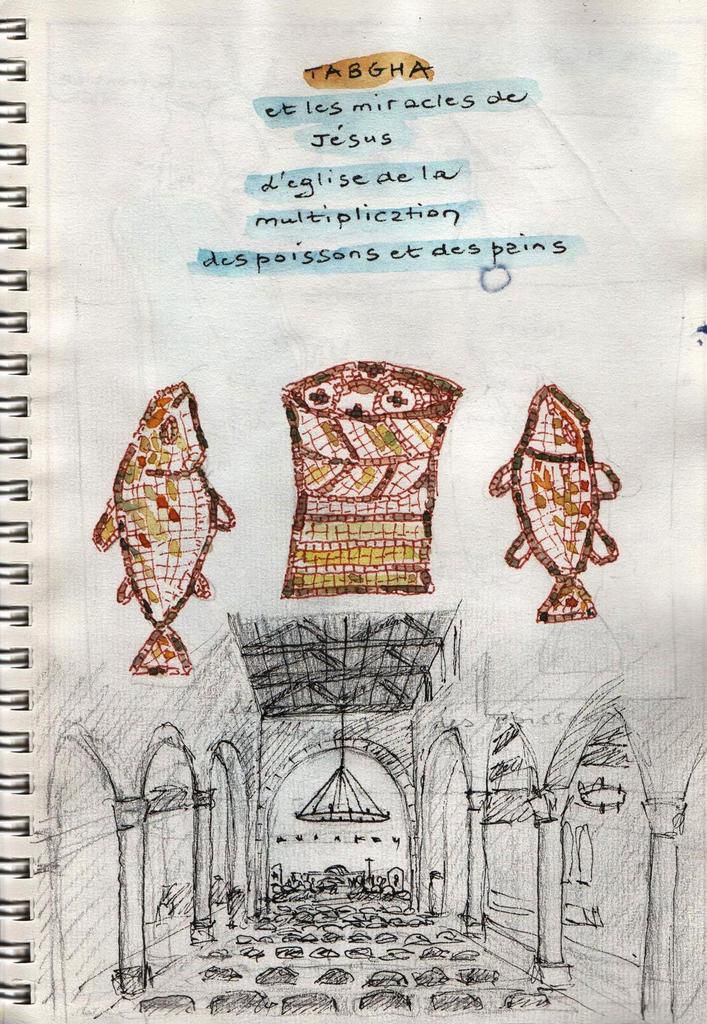 TABGHA
et les miracles de
Jésus
L'eglise de la
multiplication
des poissons et des pains